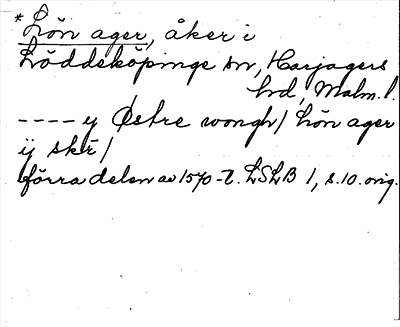 *Lön ager, åker i
Löddeköpinge sn, Harjagers
hd, Malm. l.
---- y Østre wongh / Lön ager
ij skr /
förra delen av 1570-t. LSLB 1, s. 10. orig.